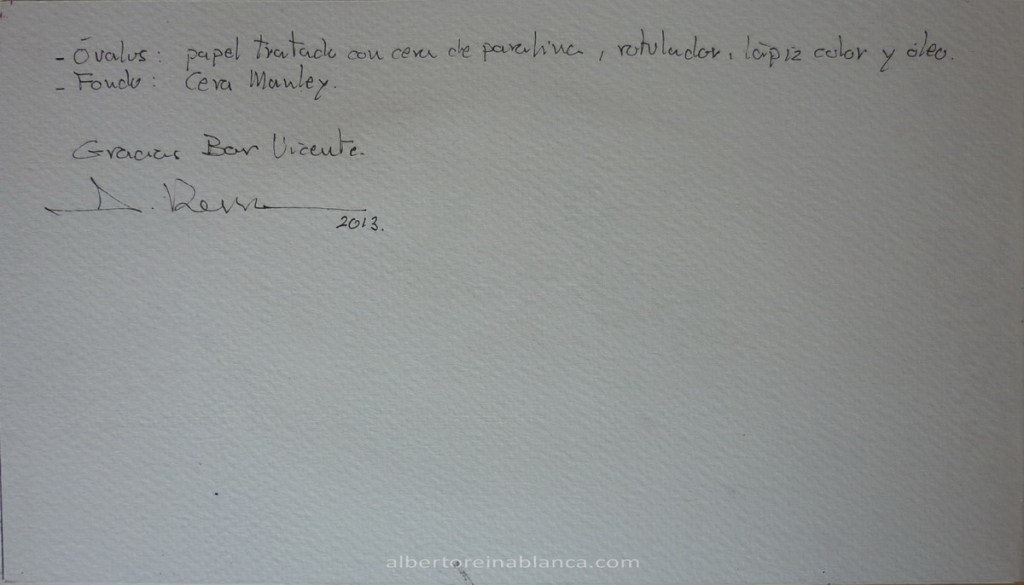 - Óvalos: papel tratado con cera de parafina, rotulador, lápiz color y óleo.
- Fondo: Cera Manley.
Gracias Bar Vicente.
A. Reina
2013.
albertoreinablanca.com